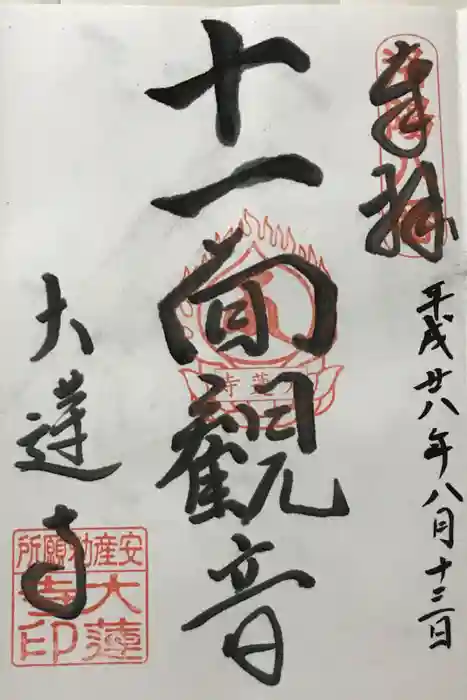 奉拝
平成廿八年八月十三日
十一面觀音
大蓮寺
蓮寺
安産祈願所
大蓮寺印